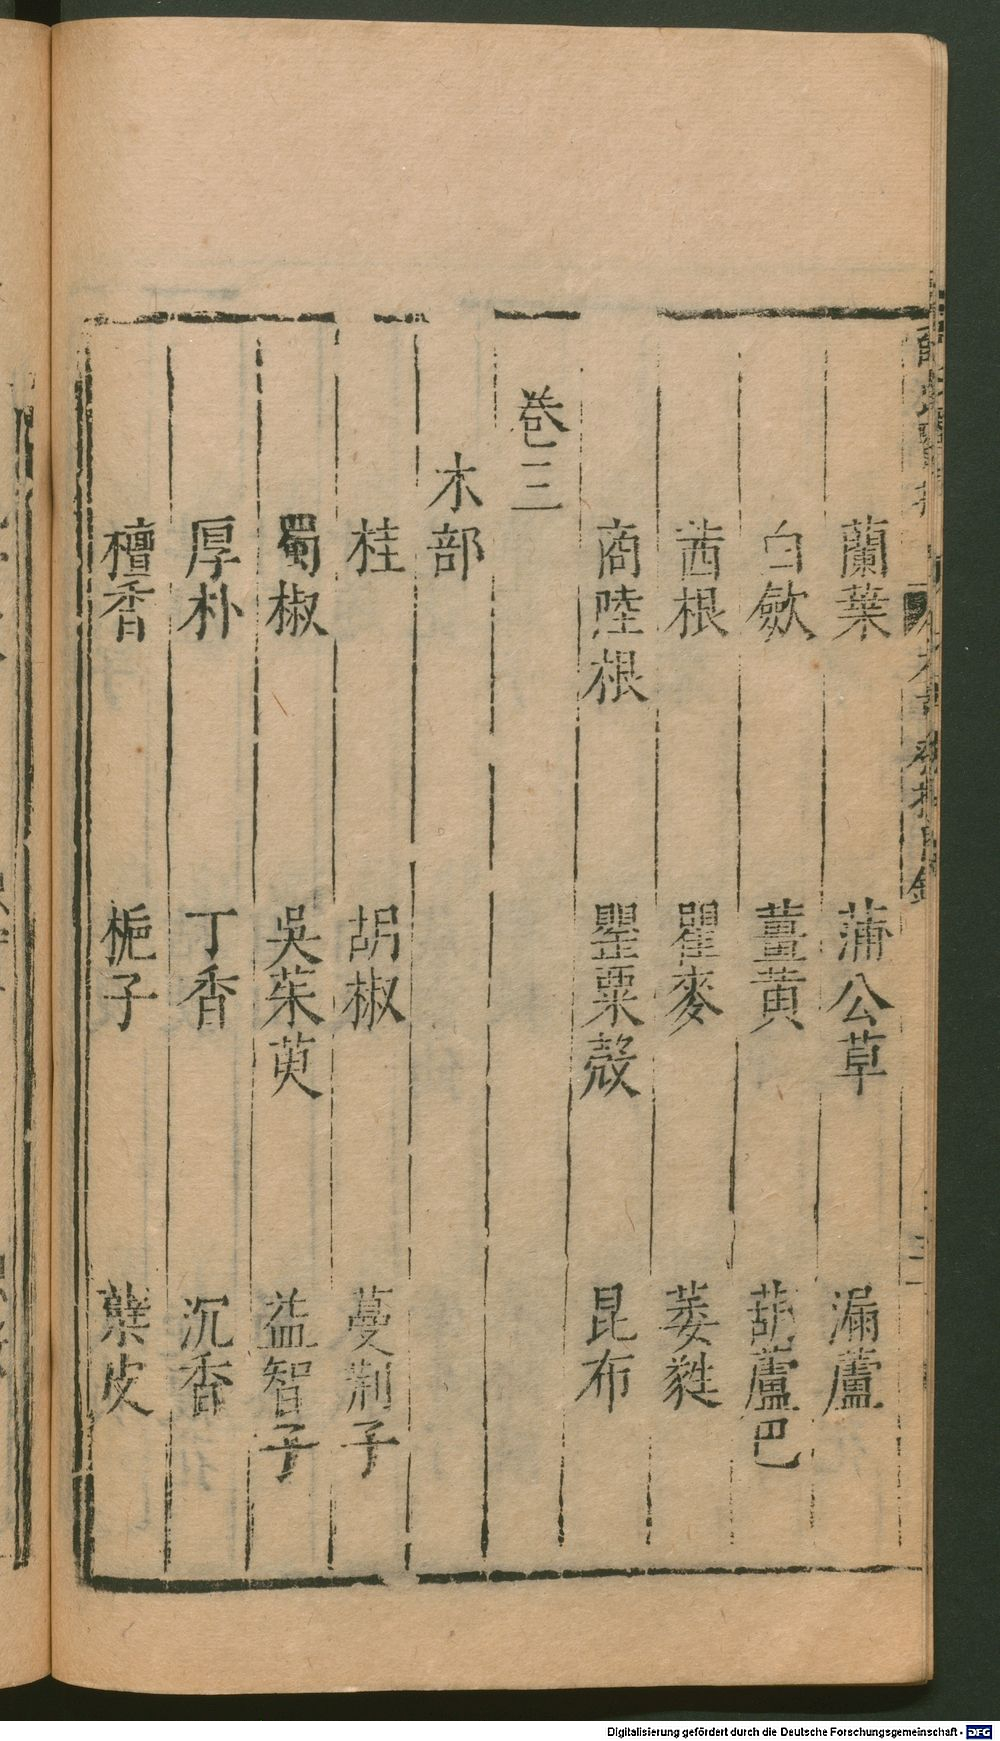 蘭葉　蒲公草　漏蘆
白蘞　薑黃　葫蘆巴
茜根　瞿麥　萎甤
商陸根　罌粟殼　昆布
卷三
木部
桂　胡椒　蔓荊子
蜀椒　吳茱萸　益智子
厚朴　丁香　沉香
檀香　梔子　蘗皮
Digitalisierung gefördert durch die Deutsche Forschungsgemeinschaft - DFG